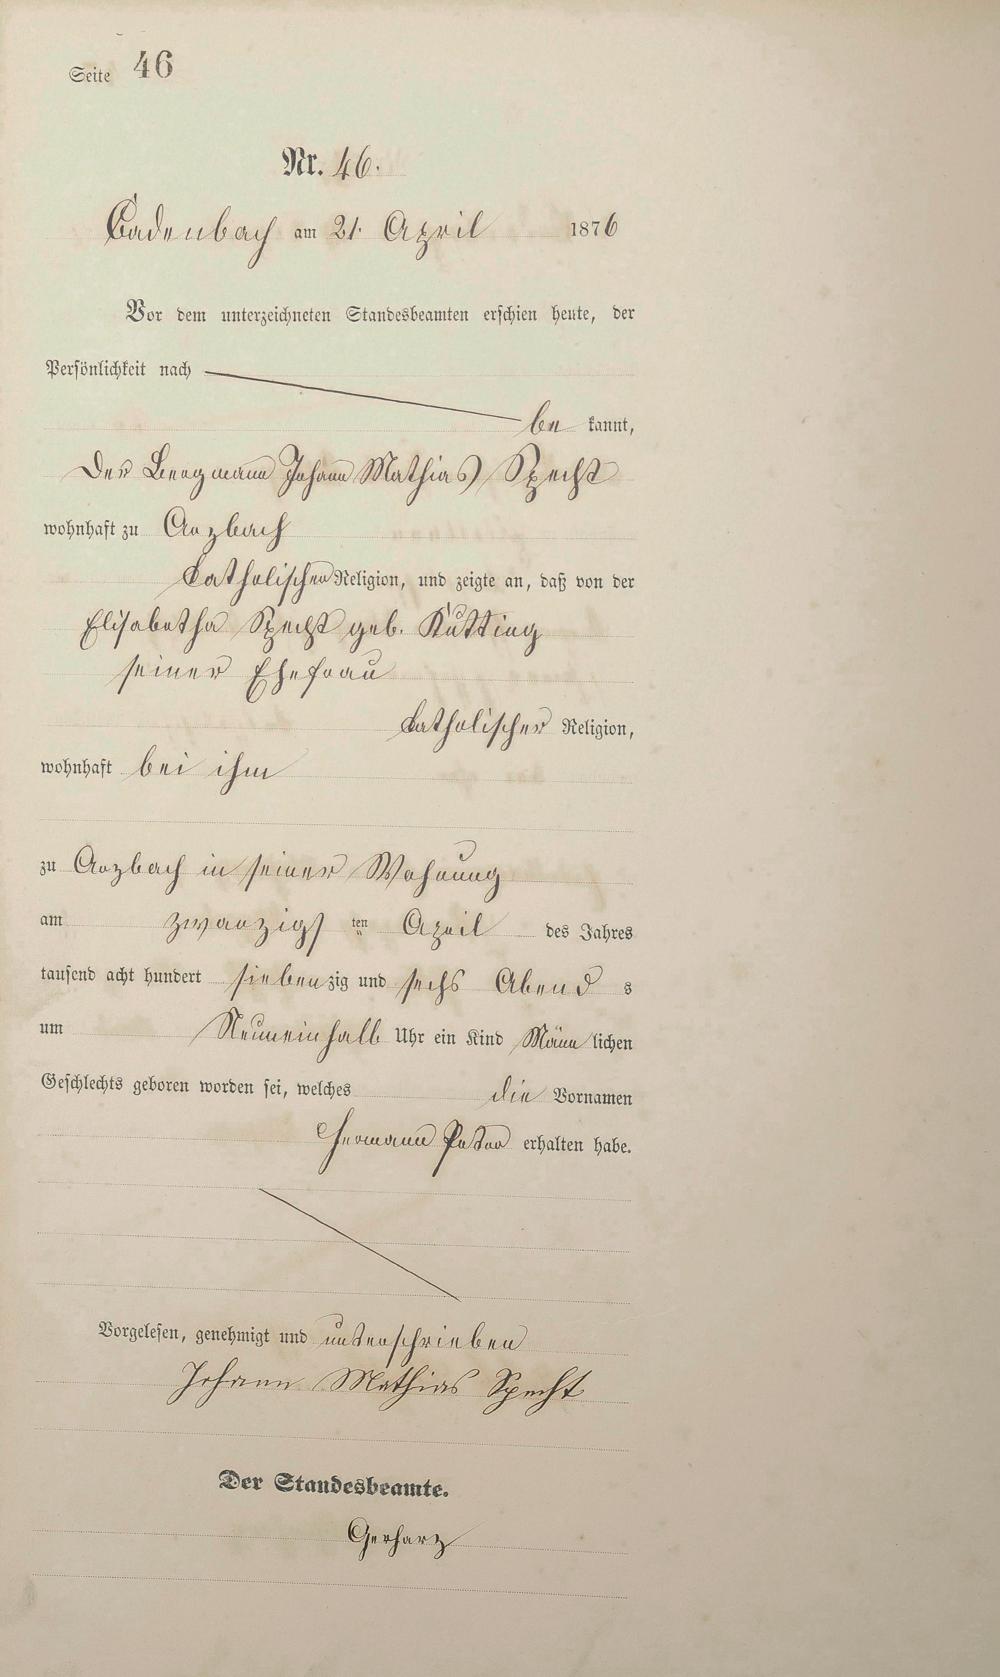 Seite 46
Nr. 46.
Cadenbach am 21. April 1876
Vor dem unterzeichneten Standesbeamten erschien heute, der
Persönlichkeit nach
be kannt,
Der Bergmann Johann Mathias Specht
wohnhaft zu Arzbach
katholischer Religion, und zeigte an, daß von der
Elisabetha Specht geb. Kütting
seiner Ehefrau
katholischer Religion,
wohnhaft bei ihm
zu Arzbach in seiner Wohnung
am zwanzigs ten April des Jahres
tausend acht hundert siebenzig und sechs Abend s
um Neuneinhalb Uhr ein Kind Männ lichen
Geschlechts geboren worden sei, welches die Vornamen
Hermann Peter erhalten habe.
Vorgelesen, genehmigt und unterschrieben
Johann Mathias Specht
Der Standesbeamte.
Gerharz